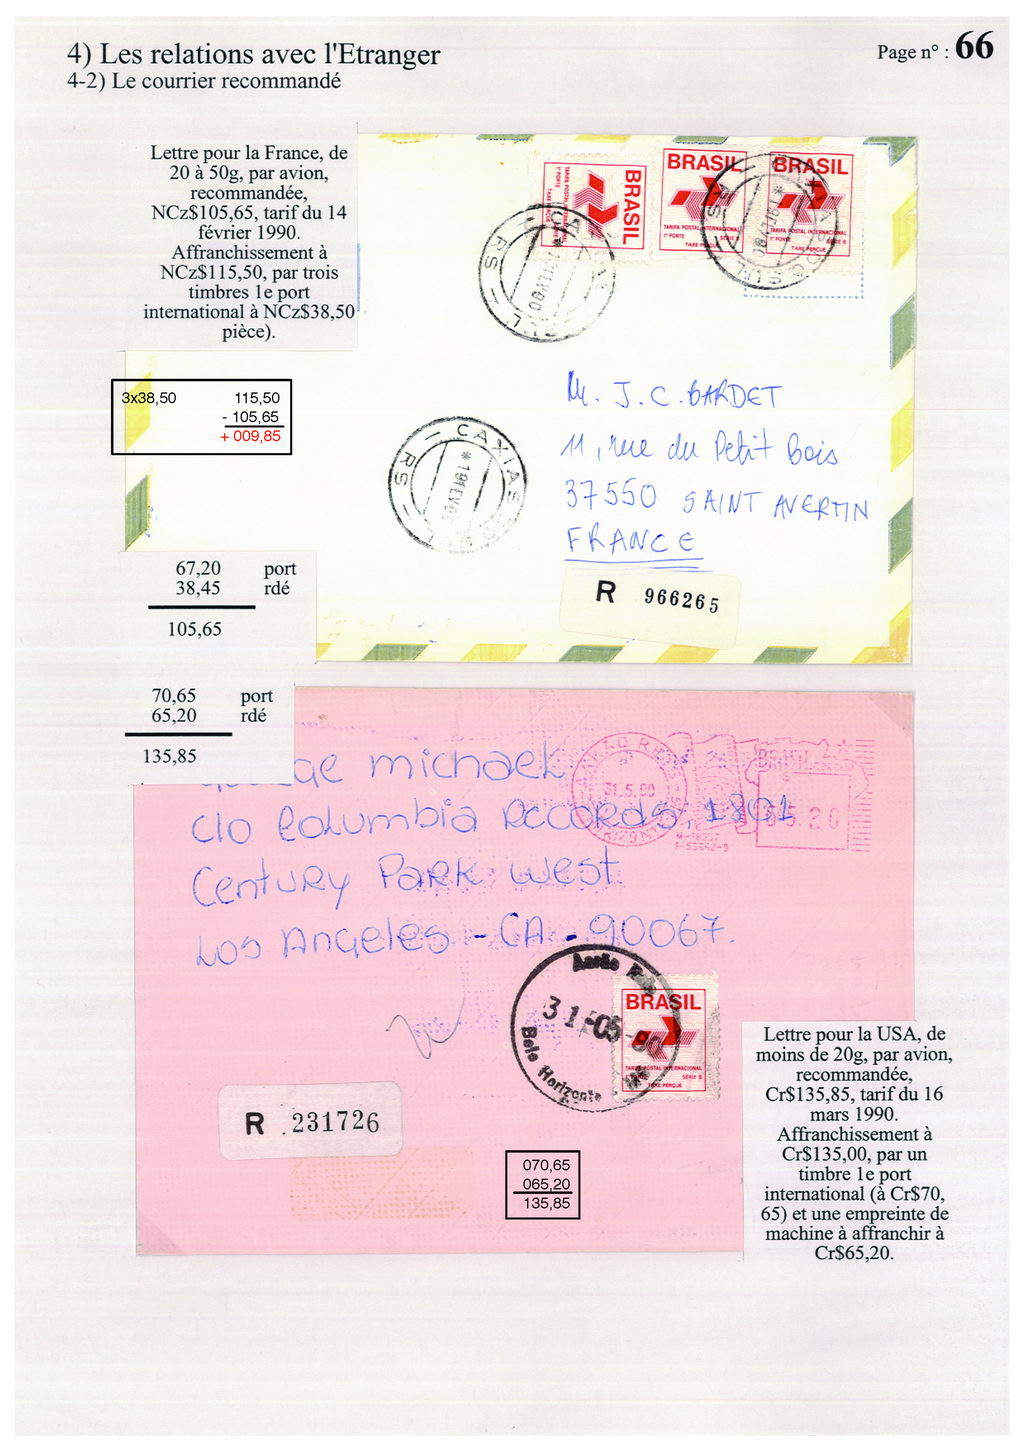 4) Les relations avec l'Etranger
4-2) Le courrier recommandé
Page n° : 66
Lettre pour la France, de
20 à 50g, par avion,
recommandée,
NCz$105,65, tarif du 14
février 1990.
Affranchissement à
NCz$115,50, par trois
timbres 1e port
international à NCz$38,50
pièce).
BRASIL
TARIFA POSTAL INTERNACIONAL
1º PORTE
TAXE PERÇUE
BRASIL
TARIFA POSTAL INTERNACIONAL
1º PORTE SÉRIE B
TAXE PERÇUE
BRASIL
TARIFA POSTAL INTERNACIONAL
1º PORTE SÉRIE B
TAXE PERÇUE
RS
RS
3x38,50 115,50
- 105,65
+ 009,85
CAXIAS
RS
M. J.C. BARDET
11, rue du Petit Bois
37550 SAINT AVERTIN
FRANCE
R 966265
67,20 port
38,45 rdé
105,65
70,65 port
65,20 rdé
135,85
michael
c/o Columbia Records, 1801
Century Park West
Los Angeles - CA - 90067.
31.5.90
BRASIL
Belo Horizonte
31-05-90
BRASIL
TARIFA POSTAL INTERNACIONAL
SÉRIE B
TAXE PERÇUE
R 231726
070,65
065,20
135,85
Lettre pour la USA, de
moins de 20g, par avion,
recommandée,
Cr$135,85, tarif du 16
mars 1990.
Affranchissement à
Cr$135,00, par un
timbre 1e port
international (à Cr$70,
65) et une empreinte de
machine à affranchir à
Cr$65,20.